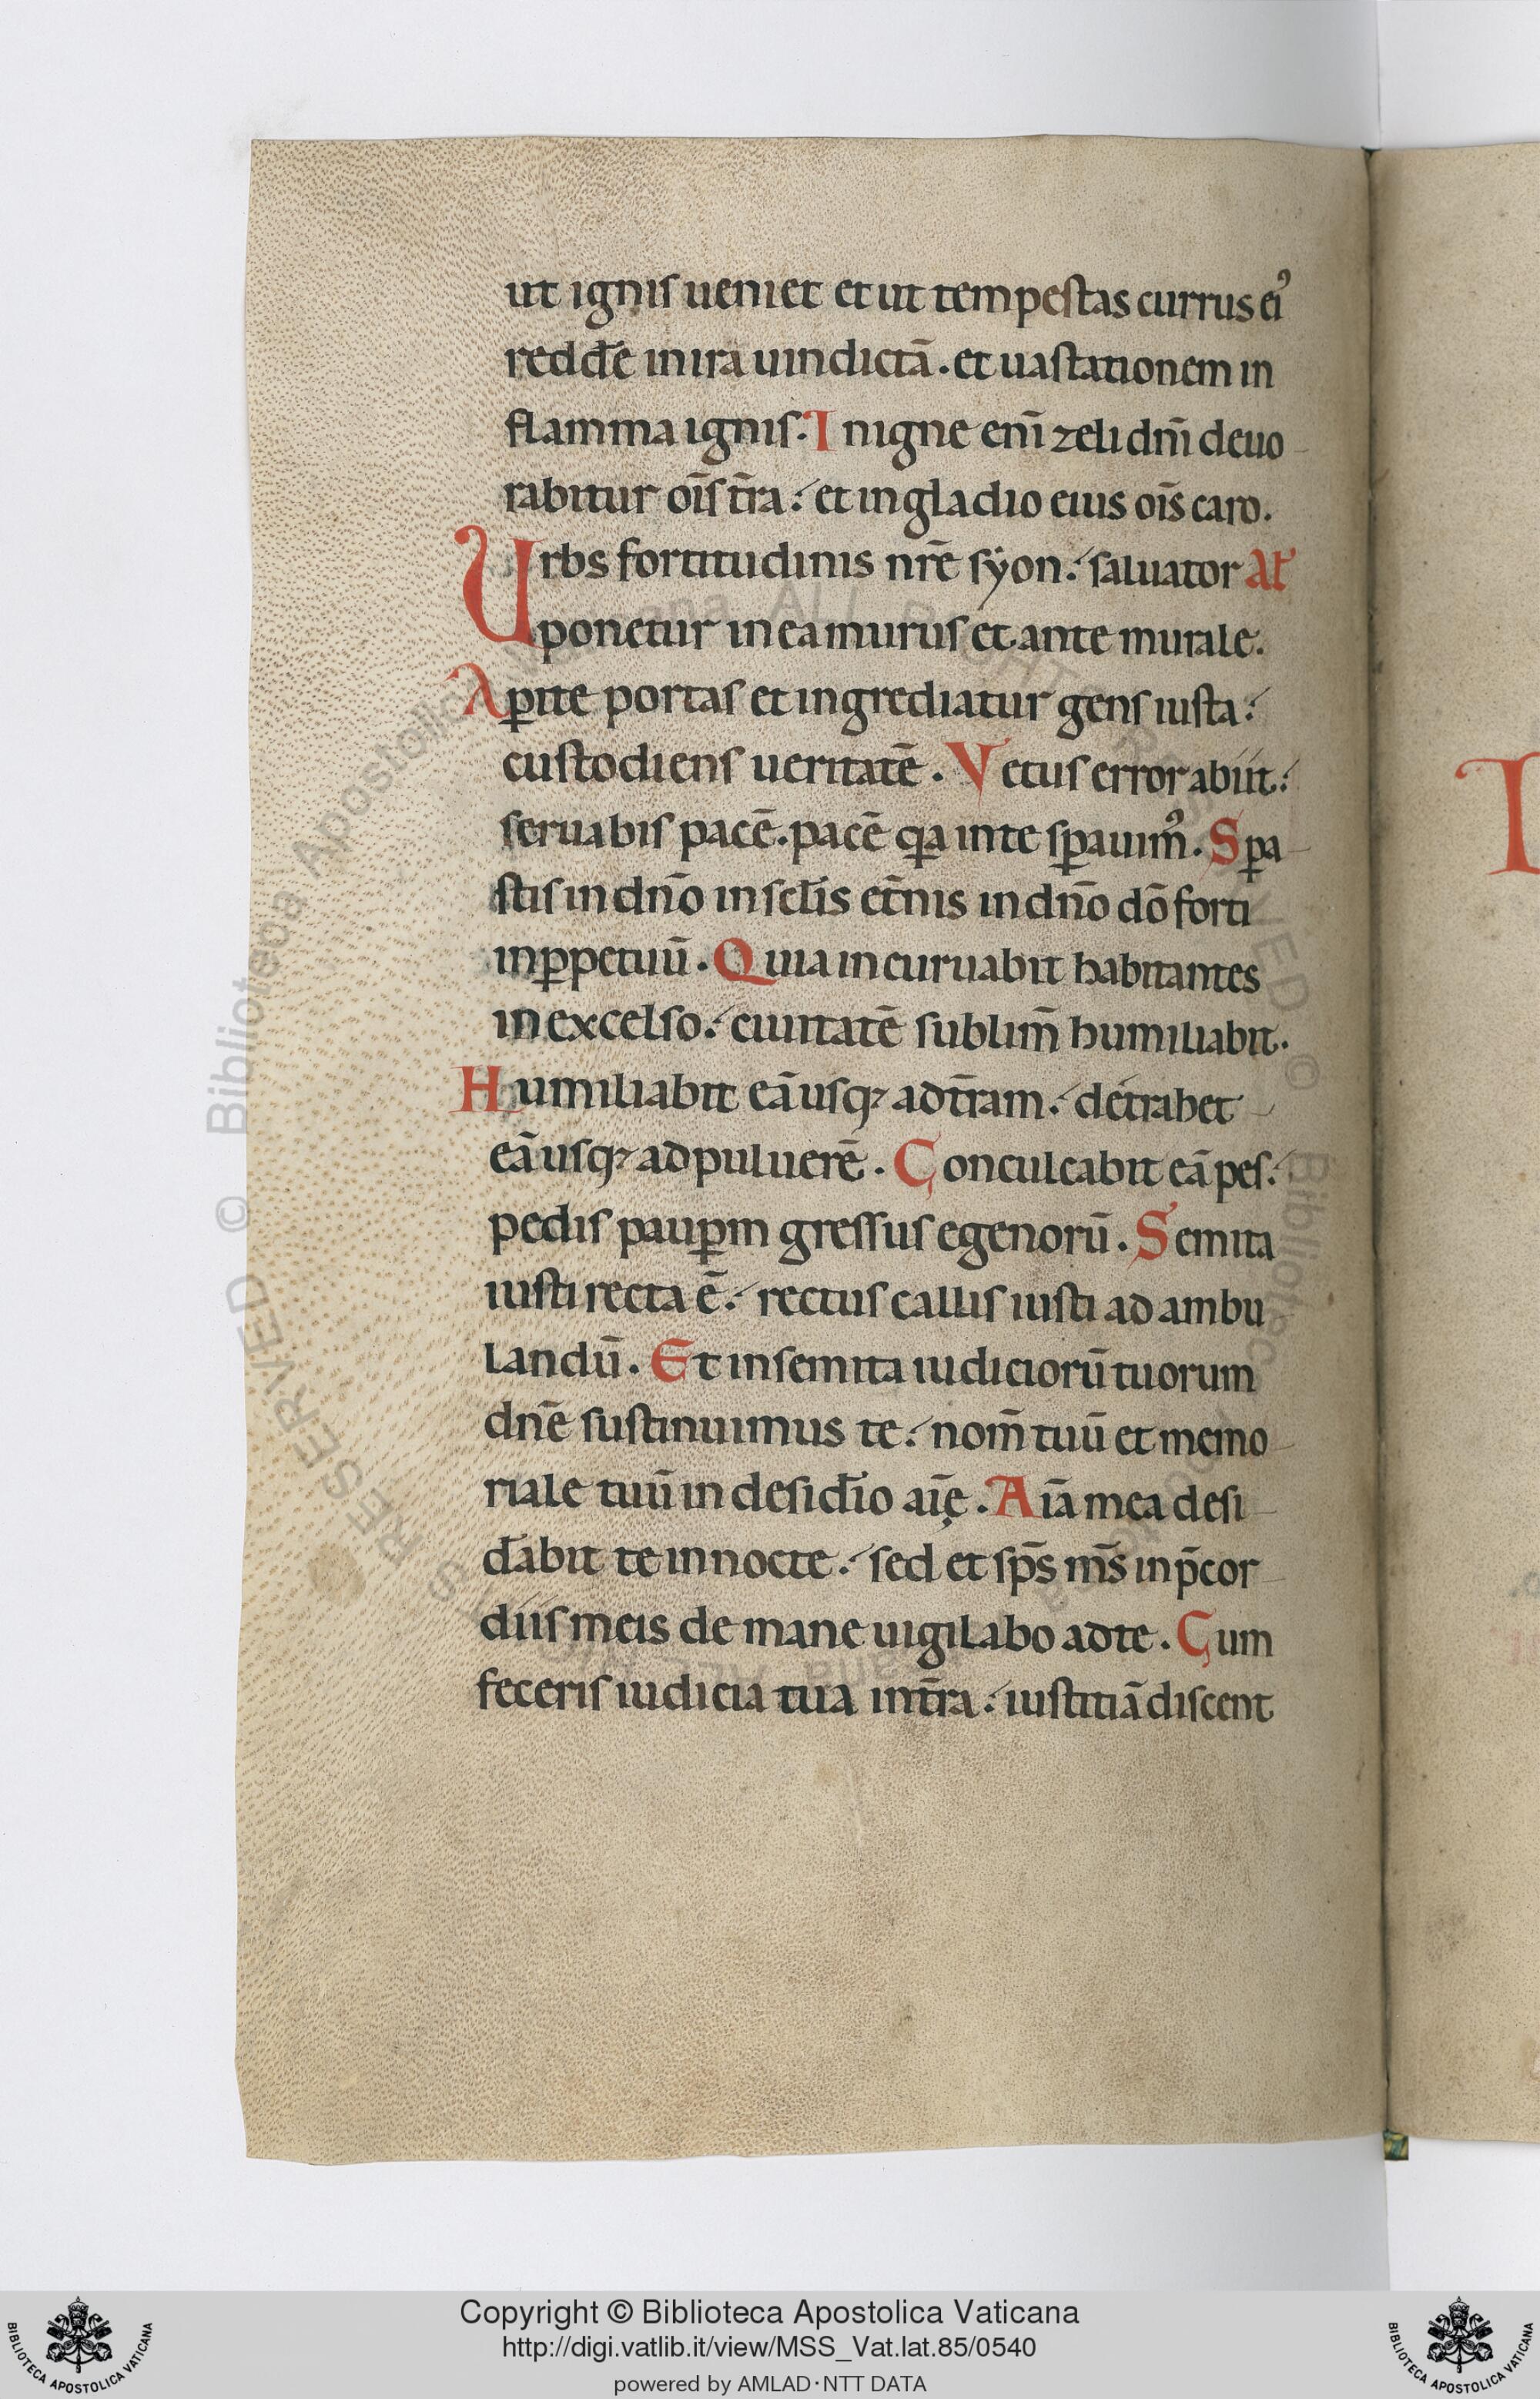 ut ignis ueniet et ut tempestas currus ei᾽
redd̄e in ira uindictā. et uastationem in
flamma ignis. In igne enī zeli dn̄i deuo-
rabitur oīs t̄ra: et in gladio eius oīs caro.
Urbs fortitudinis nr̄e syon: saluator
ponetur in ea murus et ante murale.
Aꝑite portas et ingrediatur gens iusta:
custodiens ueritatē. Vetus error abiit:
seruabis pacē. pacē qa in te sꝑauim᾽. Sꝑa-
stis in dn̄o in scl̄is et̄nis in dn̄o dō forti
in ꝑpetuū. Quia incuruabit habitantes
in excelso: ciuitatē sublim̄ humiliabit.
Humiliabit eā usqꝫ ad t̄ram: detrahet
eā usqꝫ ad puluerē. Conculcabit eā pes:
pedis pauꝑm gressus egenorū. Semita
iusti recta ē: rectus callis iusti ad ambu
landū. Et in semita iudiciorū tuorum
dn̄e sustinuimus te: nom̄ tuū et memo-
riale tuū in desid̄io aīę. Aīa mea desi-
d̄abit te in nocte: sed et sp̄s m̄s in p̄cor-
diis meis de mane uigilabo ad te. Cum
feceris iudicia tua in t̄ra: iustitiā discent
Copyright © Biblioteca Apostolica Vaticana
http://digi.vatlib.it/view/MSS_Vat.lat.85/0540
powered by AMLAD·NTT DATA
BIBLIOTECA APOSTOLICA VATICANA
BIBLIOTECA APOSTOLICA VATICANA